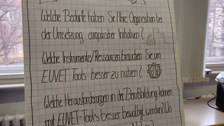 Welche Bedarfe haben Sie/Ihre Organisation bei
der Umsetzung europäischer Initiativen?
Welche Instrumente/Ressourcen brauchen Sie, um
EUVET Tools besser zu nutzen?
Welche Herausforderungen in der Berufsbildung können
mit EUVET-Tools besser bewältigt werden?